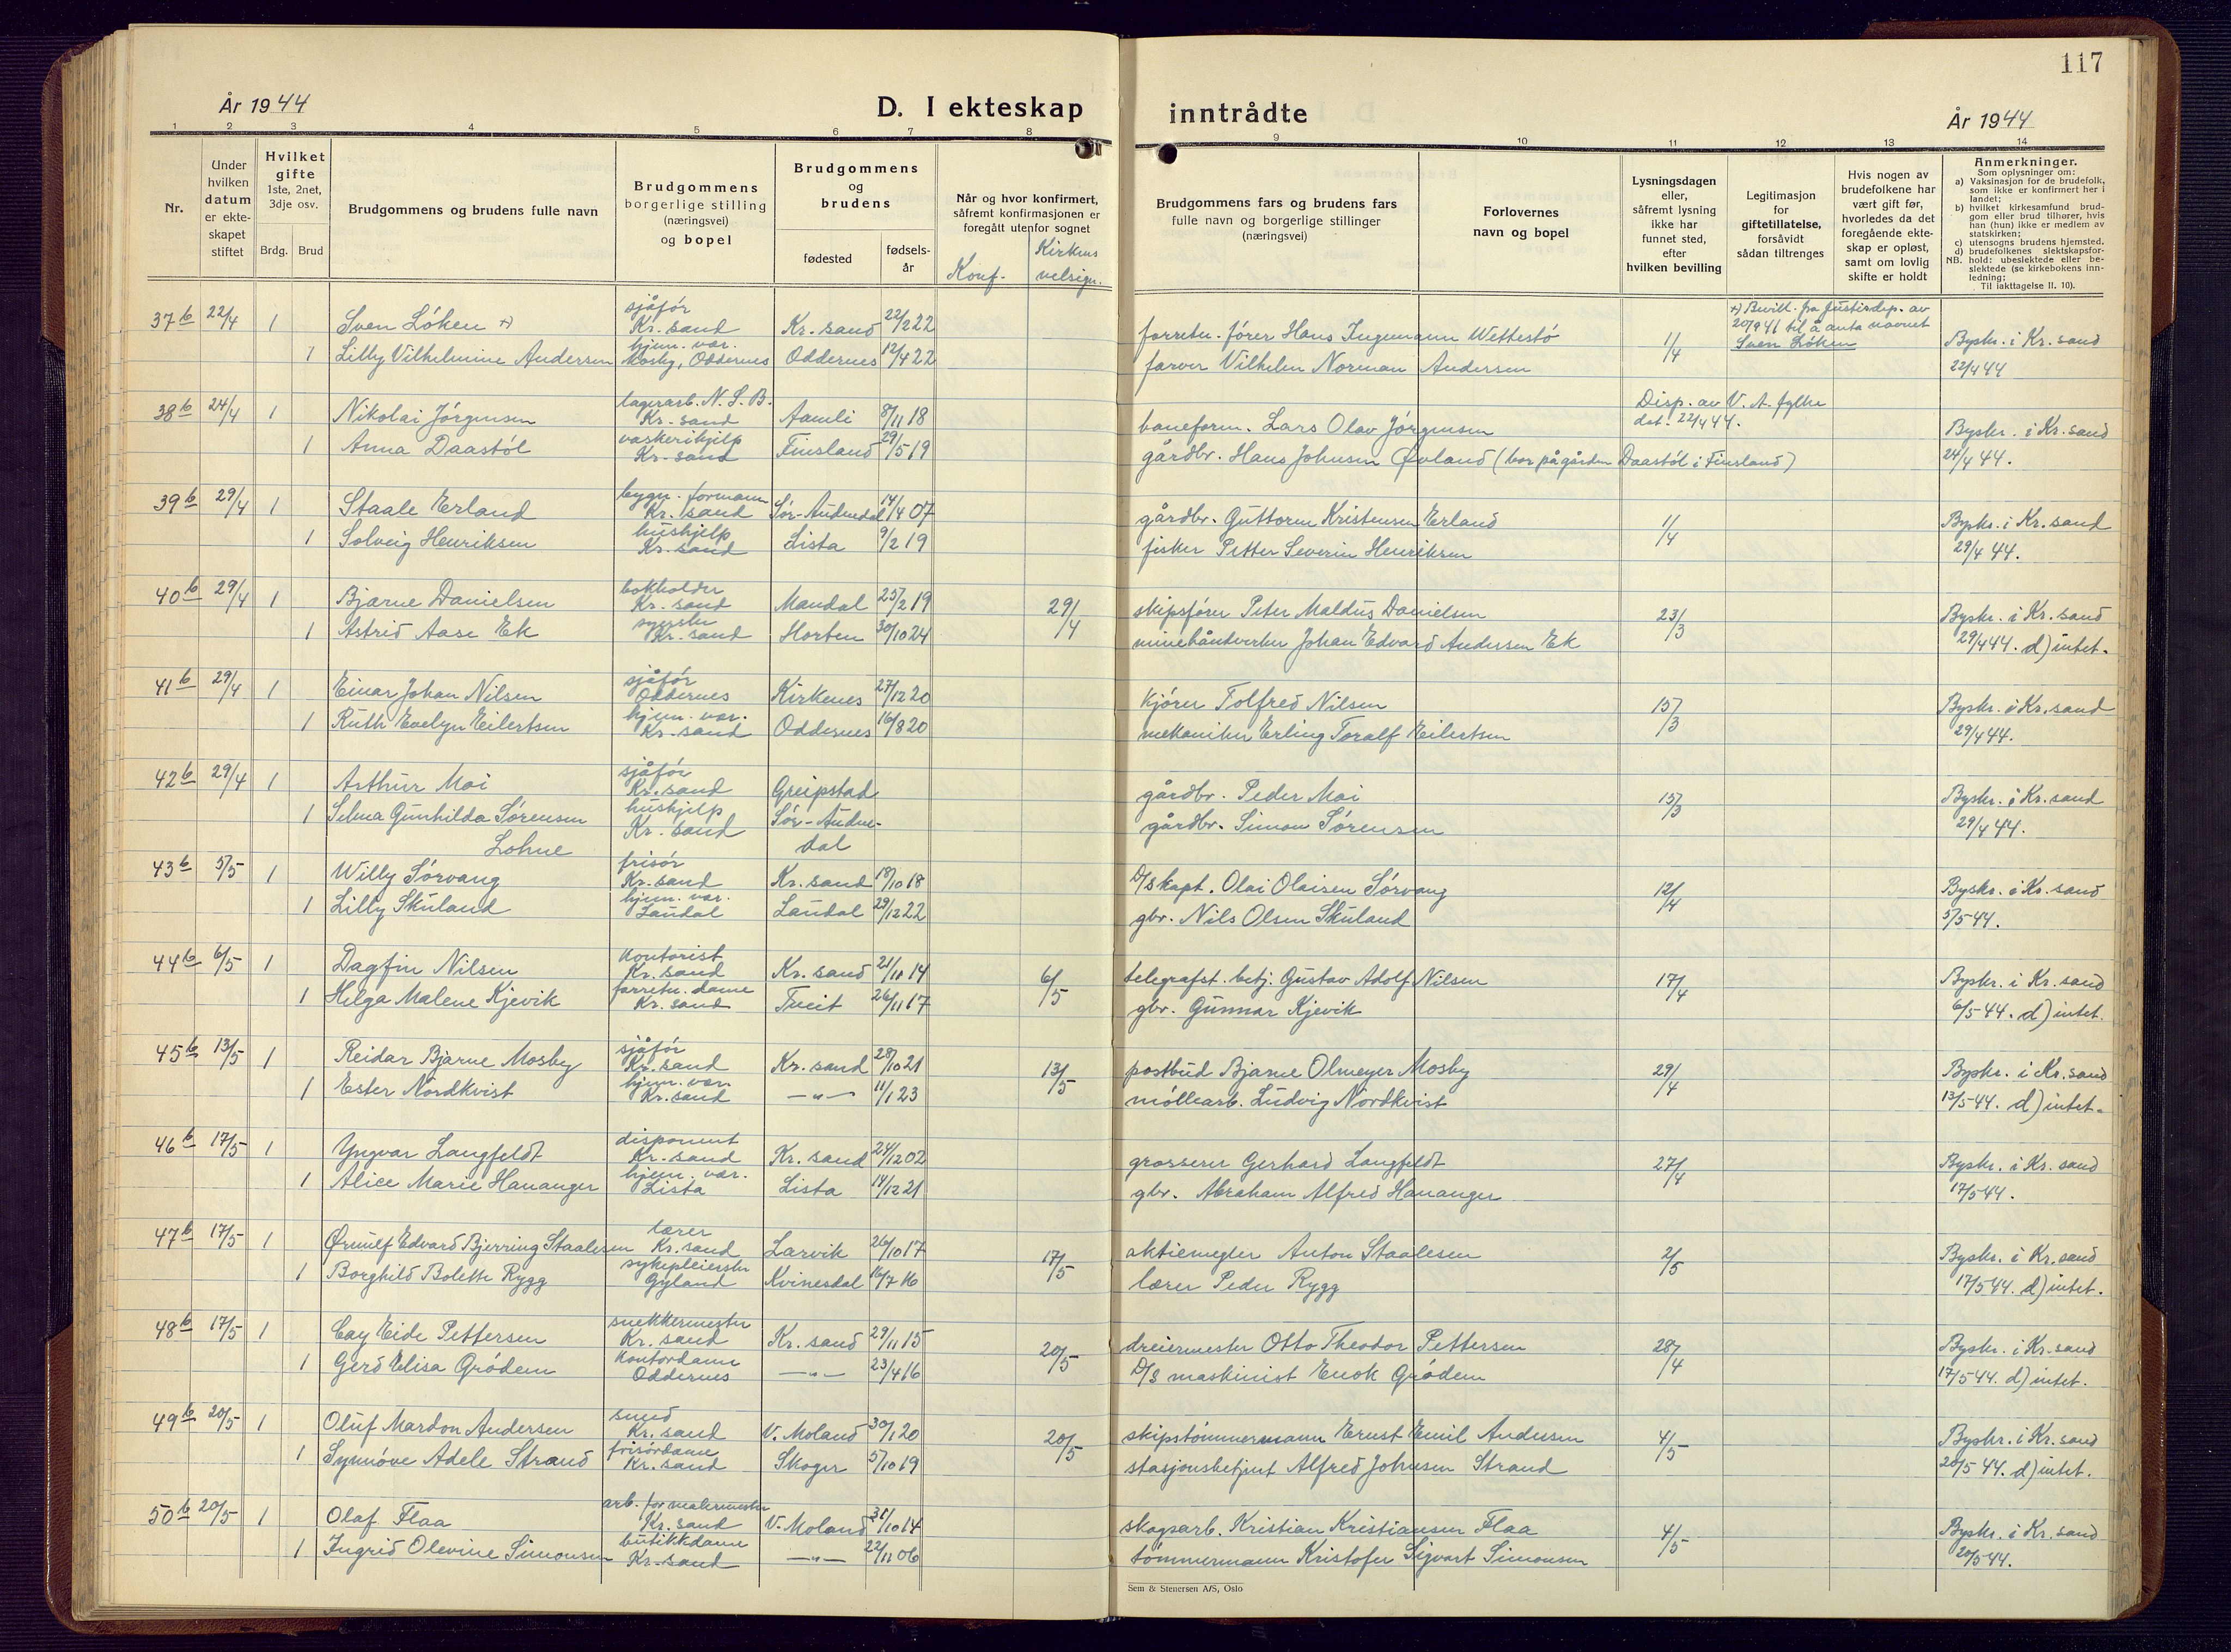 117
År 1944
D. I ekteskap inntrådte
År 1944
1 2 3 4 5 6 7 8 9 10 11 12 13 14
Nr.
Under hvilken datum er ekteskapet stiftet
Hvilket gifte 1ste, 2net, 3dje osv.
Brdg. Brud
Brudgommens og brudens fulle navn
Brudgommens borgerlige stilling (næringsvei) og bopel
Brudgommens og brudens
fødested
fødselsår
Når og hvor konfirmert, såfremt konfirmasjonen er foregått utenfor sognet
Konf.
Kirkens velsign.
Brudgommens fars og brudens fars fulle navn og borgerlige stillinger (næringsvei)
Forlovernes navn og bopel
Lysningsdagen eller, såfremt lysning ikke har funnet sted, efter hvilken bevilling
Legitimasjon for giftetillatelse, forsåvidt sådan tiltrenges
Hvis nogen av brudefolkene har vært gift før, hvorledes da det foregående ekteskap er opløst, samt om lovlig skifte er holdt
Anmerkninger.
Som oplysninger om:
a) Vaksinasjon for de brudefolk, som ikke er konfirmert her i landet;
b) hvilket kirkesamfund brudgom eller brud tilhører, hvis han (hun) ikke er medlem av statskirken;
c) utensogns brudens hjemsted,
d) brudefolkenes slektskapsforhold: ubeslektede eller beslektede (se kirkebokens innledning;
NB. Til iakttagelse II. 10).
37 b 22/4 1 Sven Løken +) sjåfør Kr. sand Kr. sand 22/2 22 forretn. fører Hans Ingemann Wettestø 1/4 +) Bevill. fra Justisdep. av 20/9 41 til å anta navnet Sven Løken Byskr. i Kr. sand
1 Lilly Vilhelmine Andersen hjem. vær. Mosby, Oddernes Oddernes 12/4 22 farver Vilhelm Norman Andersen 22/4 44
38 b 24/4 1 Nikolai Jørgensen lagerarb. N.S.B. Kr. sand Aamli 8/11 18 baneform. Lars Olav Jørgensen Disp. av V. A. fylke dat. 22/4 44. Byskr. i Kr. sand
1 Anna Daastøl vaskerihjelp Kr. sand Finsland 29/5 19 gårdbr. Hans Johnsen Øvland (bor på gården Daastøl i Finsland) 24/4 44.
39 b 29/4 1 Staale Erland bygn. formann Kr. sand Sør-Audnedal 14/4 07 gårdbr. Guttorm Kristensen Erland 1/4 Byskr. i Kr. sand
1 Solveig Henriksen hushjelp Kr. sand Lista 9/2 19 fisker Petter Severin Henriksen 29/4 44.
40 b 29/4 1 Bjarne Danielsen bokholder Kr. sand Mandal 25/2 19 29/4 skipsfører Peter Maldus Danielsen 23/3 Byskr. i Kr. sand
1 Astrid Aase Ek syerske Kr. sand Horten 30/10 24 minehåndverker Johan Edvard Andersen Ek 29/4 44. d) intet.
41 b 29/4 1 Einar Johan Nilsen sjåfør Oddernes Kirkenes 27/12 20 kjører Tolfred Nilsen 15/3 Byskr. i Kr. sand
1 Ruth Evelyn Eilertsen hjem. vær. Kr. sand Oddernes 16/8 20 mekaniker Erling Toralf Eilertsen 29/4 44.
42 b 29/4 1 Arthur Moi sjåfør Kr. sand Greipstad gårdbr. Peder Moi 15/3 Byskr. i Kr. sand
1 Selma Gunhilda Sørensen Lohne hushjelp Kr. sand Sør-Audnedal gårdbr. Simon Sørensen 29/4 44.
43 b 5/5 1 Willy Sørvang frisør Kr. sand Kr. sand 18/10 18 D/S kapt. Olai Olaisen Sørvang 12/4 Byskr. i Kr. sand
1 Lilly Skuland hjem. vær. Laudal Laudal 29/12 22 gbr. Nils Olsen Skuland 5/5 44.
44 b 6/5 1 Dagfin Nilsen kontorist Kr. sand Kr. sand 21/11 14 6/5 telegrafst. betj. Gustav Adolf Nilsen 17/4 Byskr. i Kr. sand
1 Helga Malene Kjevik forretn. dame Kr. sand Tveit 26/11 17 gbr. Gunnar Kjevik 6/5 44. d) intet.
45 b 13/5 1 Reidar Bjarne Mosby sjåfør Kr. sand Kr. sand 28/10 21 13/5 postbud Bjarne Olmeyer Mosby 29/4 Byskr. i Kr. sand
1 Ester Nordkvist hjem. vær. Kr. sand —„— 11/1 23 møllearb. Ludvig Nordkvist 13/5 44. d) intet.
46 b 17/5 1 Yngvar Langfeldt disponent Kr. sand Kr. sand 24/12 02 grosserer Gerhard Langfeldt 27/4 Byskr. i Kr. sand
1 Alice Marie Hananger hjem. vær. Lista Lista 14/12 21 gbr. Abraham Alfred Hananger 17/5 44.
47 b 17/5 1 Ørnulf Edvard Bjerring Staalesen lærer Kr. sand Larvik 26/10 17 17/5 aktiemegler Anton Staalesen 2/5 Byskr. i Kr. sand
1 Borghild Bolette Rygg sykepleierske Gyland Kvinesdal 16/7 16 lærer Peder Rygg 17/5 44. d) intet.
48 b 17/5 1 Cay Eide Pettersen snekkermester Kr. sand Kr. sand 29/11 15 20/5 dreiermester Otto Theodor Pettersen 28/4 Byskr. i Kr. sand
1 Gerd Elisa Grødem kontordame Oddernes —„— 23/4 16 D/S maskinist Enok Grødem 17/5 44. d) intet.
49 b 20/5 1 Oluf Mardon Andersen smed Kr. sand V. Moland 30/1 20 20/5 skipstømmermann Ernst Emil Andersen 4/5 Byskr. i Kr. sand
1 Synnøve Adele Strand frisørdame Kr. sand Skoger 5/10 19 stasjonsbetjent Alfred Johnsen Strand 20/5 44. d) intet.
50 b 20/5 1 Olaf Flaa arb. for malermester Kr. sand V. Moland 31/10 14 skogsarb. Kristian Kristiansen Flaa 4/5 Byskr. i Kr. sand
1 Ingrid Olevine Simonsen butikkdame Kr. sand —„— 22/11 06 tømmermann Kristofer Sigvart Simonsen 20/5 44.
Sem & Stenersen A/S, Oslo